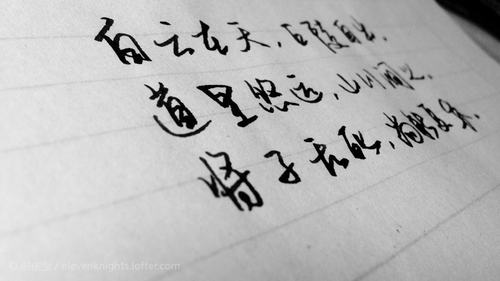 白云在天,丘陵自出,
道里悠远,山川间之.
将子无死,尚能复来.
elevenknights.lofter.com